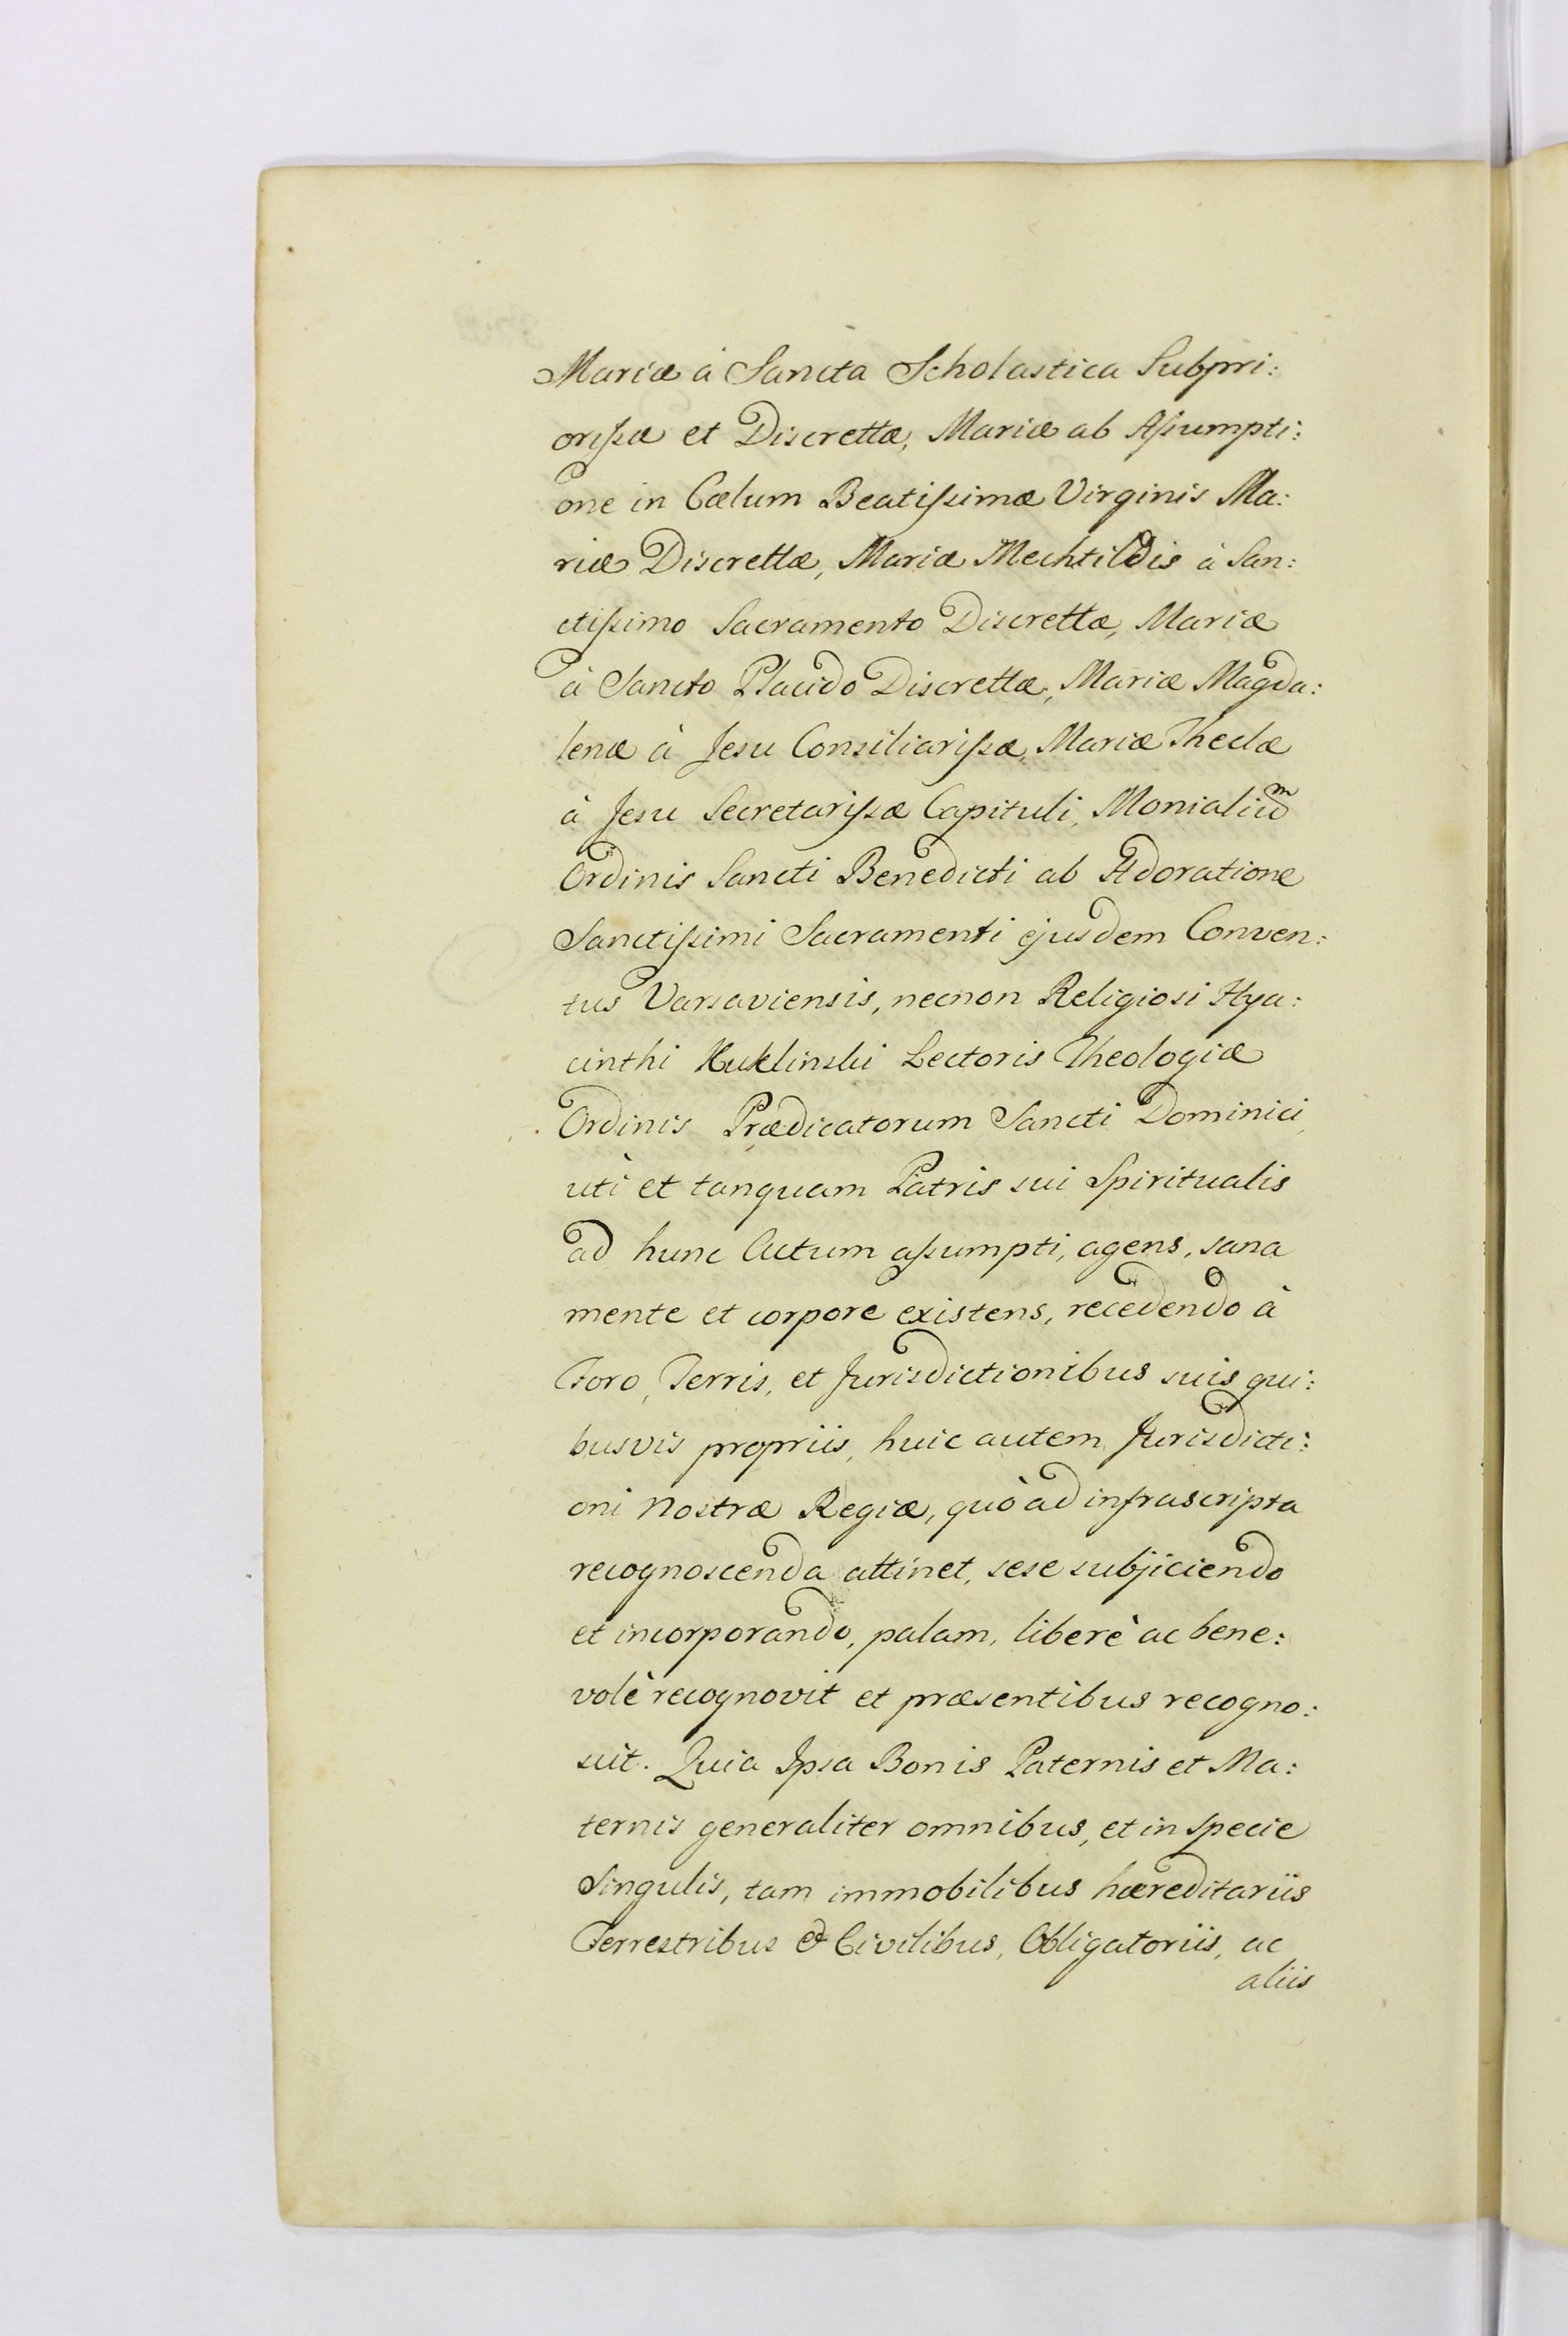 Mariæ à Sancta Scholastica Subpri:
orissæ et Discrettæ, Mariæ ab Assumpti:
one in Cœlum Beatissimæ Virginis Ma:
riæ Discrettæ, Mariæ Mechtildis à San:
ctissimo Sacramento Discrettæ, Mariæ
à Sancto Placido Discrettæ, Mariæ Magda:
lenæ à Jesu Consiliarissæ, Mariæ Theclæ
à Jesu Secretarissæ Capituli, Monialium
Ordinis Sancti Benedicti ab Adoratione
Sanctissimi Sacramenti ejusdem Conven:
tus Varsaviensis, necnon Religiosi Hya:
cinthi Kuklinski Lectoris Theologiæ
Ordinis Prædicatorum Sancti Dominici,
utì et tanquam Patris sui Spiritualis
ad hunc Actum assumpti, agens, sana
mente et corpore existens, recedendo à
Foro, Terris, et Jurisdictionibus suis qui:
busvis propriis, huic autem Jurisdicti:
oni Nostræ Regiæ, quò ad infrascripta
recognoscenda attinet, sese subjiciendo
et incorporando, palam, liberè ac bene:
volè recognovit et præsentibus recogno:
scit. Quia Ipsa Bonis Paternis et Ma:
ternis generaliter omnibus, et in specie
Singulis, tam immobilibus hæreditariis
Terrestribus & Civilibus, Obligatoriis, ac
aliis